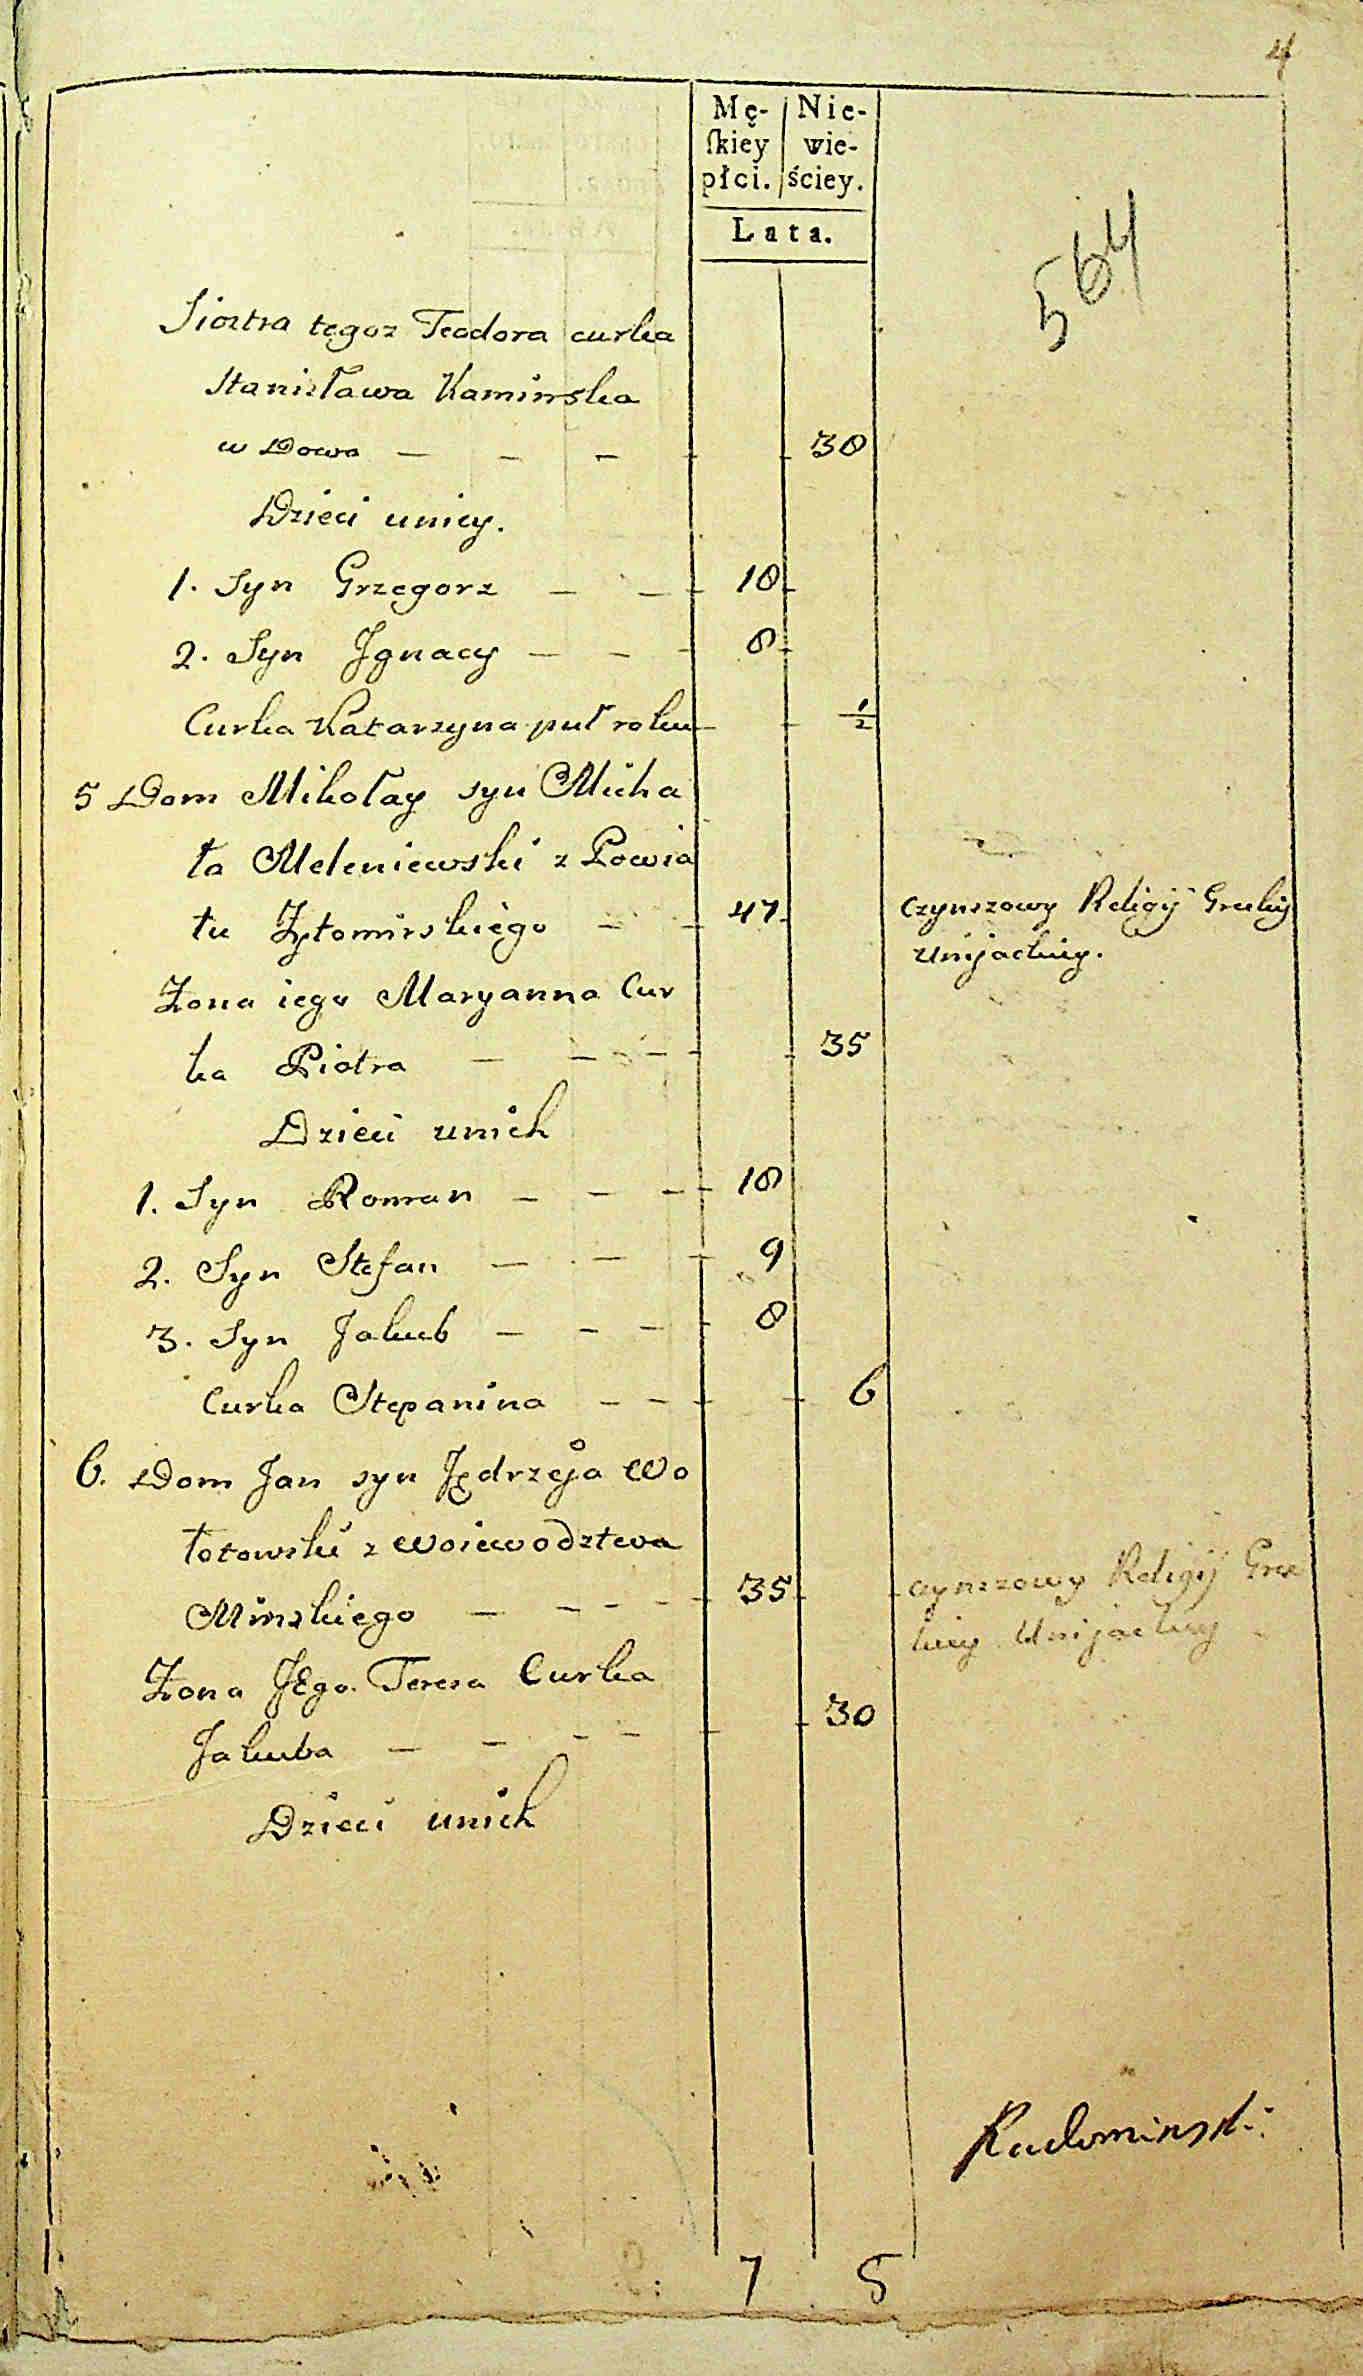 4
Mę- Nie-
ſkiey wie-
płci. ściey.
Lata.
564
Siostra tegoz Teodora curka
Stanisława Kaminska
w Dowa — — — 38
Dzieci unicy.
1. Syn Grzegorz — — 18
2. Syn Jgnacy — — 8
Curka Katarzyna puł roku — ½
5 Dom Mikołay syn Micha
ła Meleniewski z Powia
tu Żytomirskiego — — 47 Czynszowy Religij Greckiy
Unijackiey.
Żona iego Maryanna Cur
ka Piotra — — — 35
Dzieci unich
1. Syn Roman — — — 18
2. Syn Stefan — — — 9
3. Syn Jakub — — — 8
Curka Stepanina — — 6
6. Dom Jan syn Jędrzeja Wo
łotowski z Woiewodztwa
Minskiego — — — — 35 czynszowy Religij Grec
kiey Unijackiey
Żona JEgo. Teresa Curka
Jakuba — — — — 30
Dzieci unich
Radominski
7 5